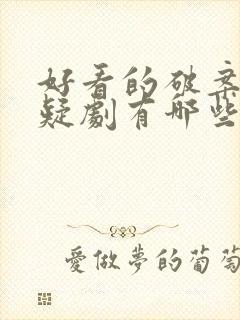 好看的破案
疑劇有哪些
愛做夢的葡萄